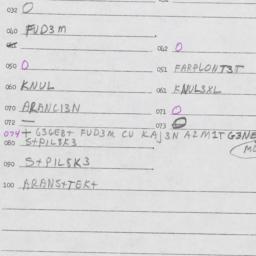 032 O
040 FUD3M
062 O
050 O
051 FARPLONT3T
060 KNUL
061 KNULSXL
070 ARANCI3N
071 O
072 —
073 O
074 + G3GE8+ FUD3M CU KAJ3N A2M1T G3NE
080 S+PILSK3
090 S+PILSK3
100 ARANS+TEK+